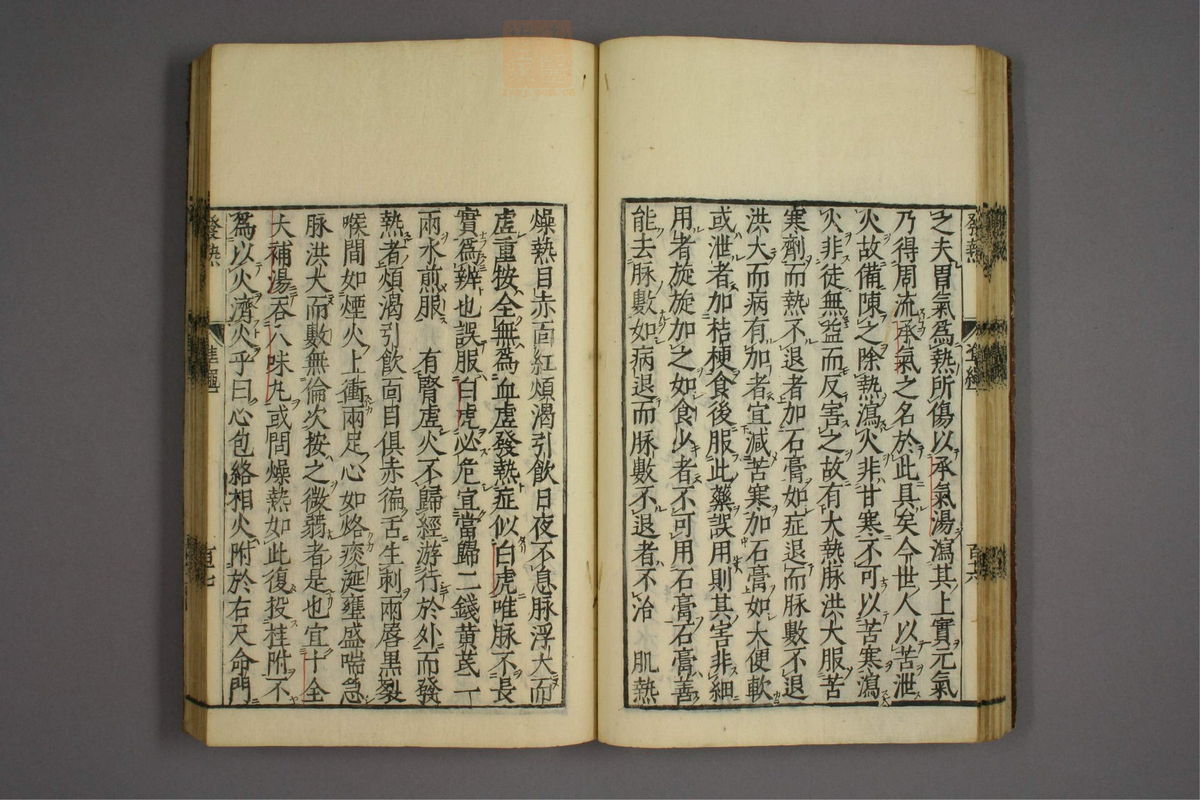 之夫胃氣爲熱所傷以承氣湯瀉其上實元氣
乃得周流承氣之名於此具矣今世人以苦泄
火故備陳之除熱瀉火非甘寒不可以苦寒瀉
火非徒無益而反害之故有大熱脉洪大服苦
寒劑而熱不退者加石膏如症退而脉數不退
洪大而病有加者宜減苦寒加石膏如大便軟
或泄者加桔梗食後服此藥誤用則其害非細
用者旋旋加之如食少者不可用石膏石膏善
能去脉數如病退而脉數不退者不治　肌熱
燥熱目赤靣紅煩渴引飲日夜不息脉浮大而
虛重按全無爲血虛發熱症似白虎唯脉不長
實爲辨也誤服白虎必危宜當歸二錢黄芪一
兩水煎服　有腎虛火不歸經游行於外而發
熱者煩渴引飲靣目俱赤徧舌生刺兩唇黒裂
喉間如煙火上衝兩足心如烙痰涎壅盛喘急
脉洪大而數無倫次按之微弱者是也宜十全
大補湯吞八味丸或問燥熱如此復投桂附不
爲以火濟火乎曰心包絡相火附於右尺命門
發熱
準繩
百七